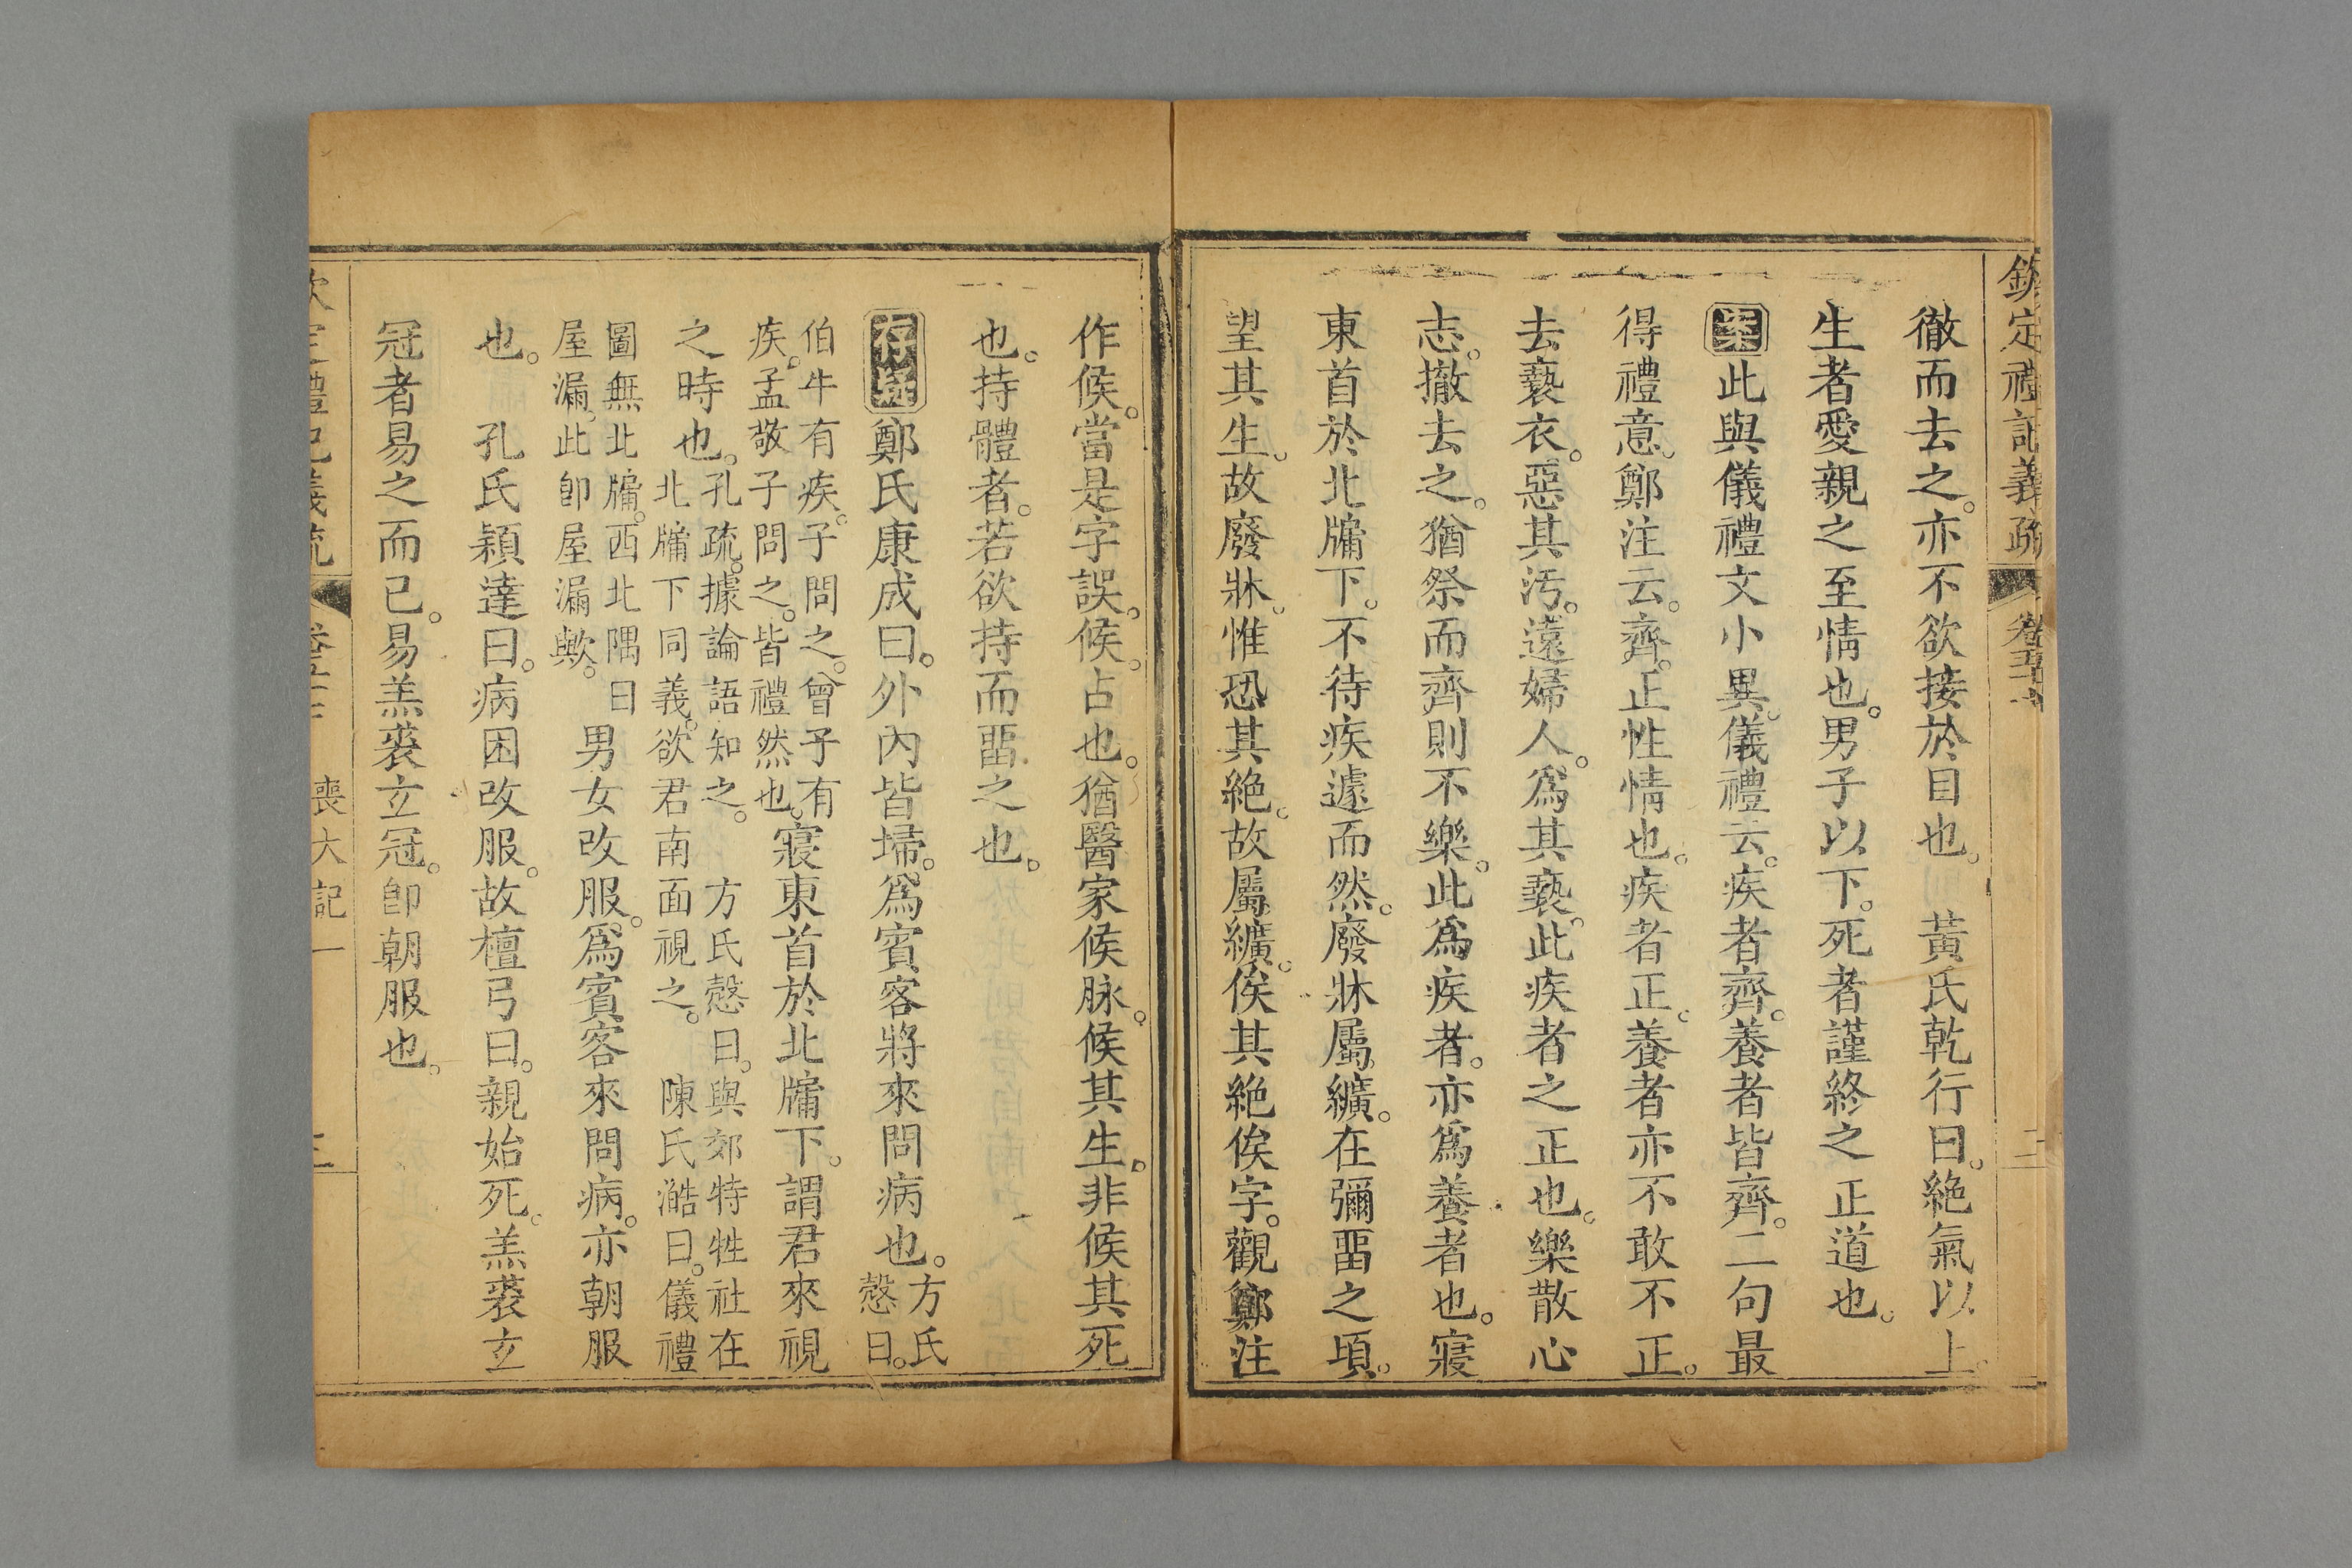 欽定禮記義疏 卷五十八
徹而去之。亦不欲接於目也。 黃氏乾行曰。絕氣以上。
生者愛親之至情也。男子以下。死者謹終之正道也。
案此與儀禮文小異。儀禮云。疾者齊。養者皆齊。二句最
得禮意。鄭注云。齊。正性情也。疾者正。養者亦不敢不正。
去褻衣。惡其汚。遠婦人。爲其褻。此疾者之正也。樂散心
志。撤去之。猶祭而齊則不樂。此爲疾者。亦爲養者也。寢
東首於北牖下。不待疾遽而然。廢牀屬纊。在彌畱之頃。
望其生。故廢牀。惟恐其絕。故屬纊。俟其絕俟字。觀鄭注
作候。當是字誤。候。占也。猶醫家候脉。候其生。非候其死
也。持體者。若欲持而畱之也。
存疑鄭氏康成曰。外內皆埽。爲賓客將來問病也。方氏
慤曰。
伯牛有疾。子問之。曾子有
疾。孟敬子問之。皆禮然也。寢東首於北牖下。謂君來視
之時也。孔疏。據論語知之。 方氏慤曰。與郊特牲社在
北牖下同義。欲君南面視之。 陳氏澔曰。儀禮
圖無北牖。西北隅曰
屋漏。此卽屋漏歟。 男女改服。爲賓客來問病。亦朝服
也。 孔氏穎達曰。病困改服。故檀弓曰。親始死。羔裘玄
冠者易之而已。易羔裘玄冠。卽朝服也。
喪大記一